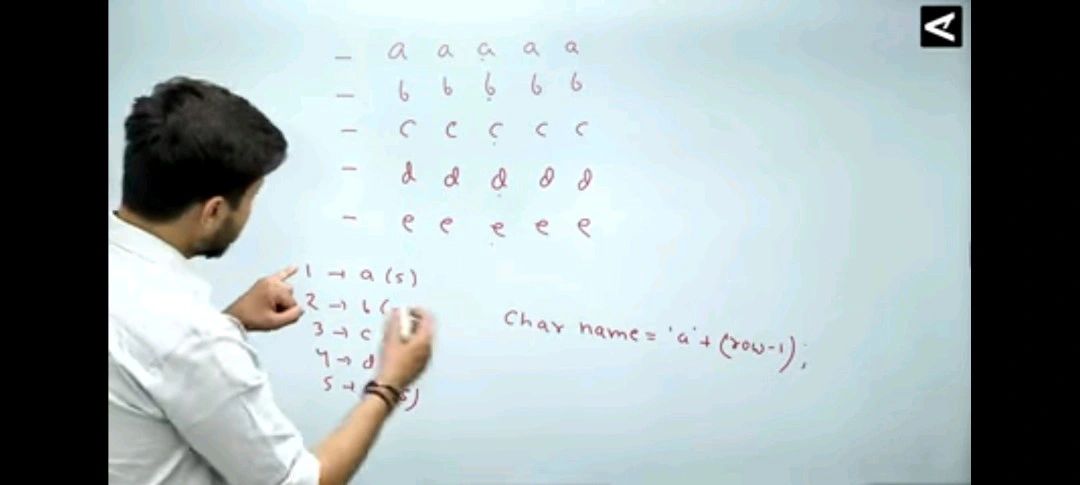 - a a a a a
- b b b b b
- c c c c c
- d d d d d
- e e e e e
1 → a (5)
2 → b (
3 → c
4 → d
5 → 5)
char name = 'a' + (row-1);